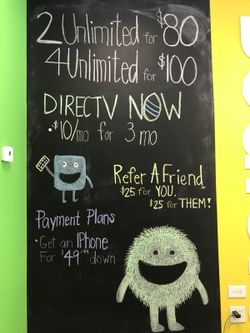 2 Unlimited for $80
4 Unlimited for $100
DIRECTV NOW
• $10/mo for 3 mo
Refer A Friend
$25 for YOU.
$25 for THEM!
Payment Plans
• Get an IPhone
For $49.99 down